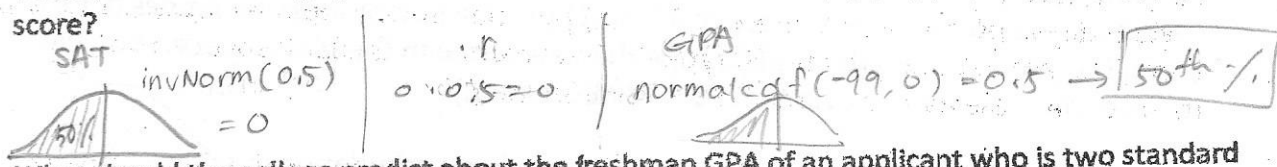 score?
SAT
invNorm(0.5)
= 0
50%
· r
0 · 0.5 = 0
GPA
normalcdf(-99, 0) = 0.5 → 50th %.
predict about the freshman GPA of an applicant who is two standard